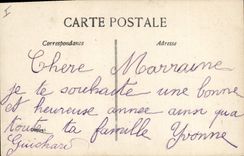 CARTE POSTALE
Correspondance
Adresse
Chere Marraine
je te souhaite une bonne
et heureuse annee ainsi qua
toute ta famille Yvonne
Guichard